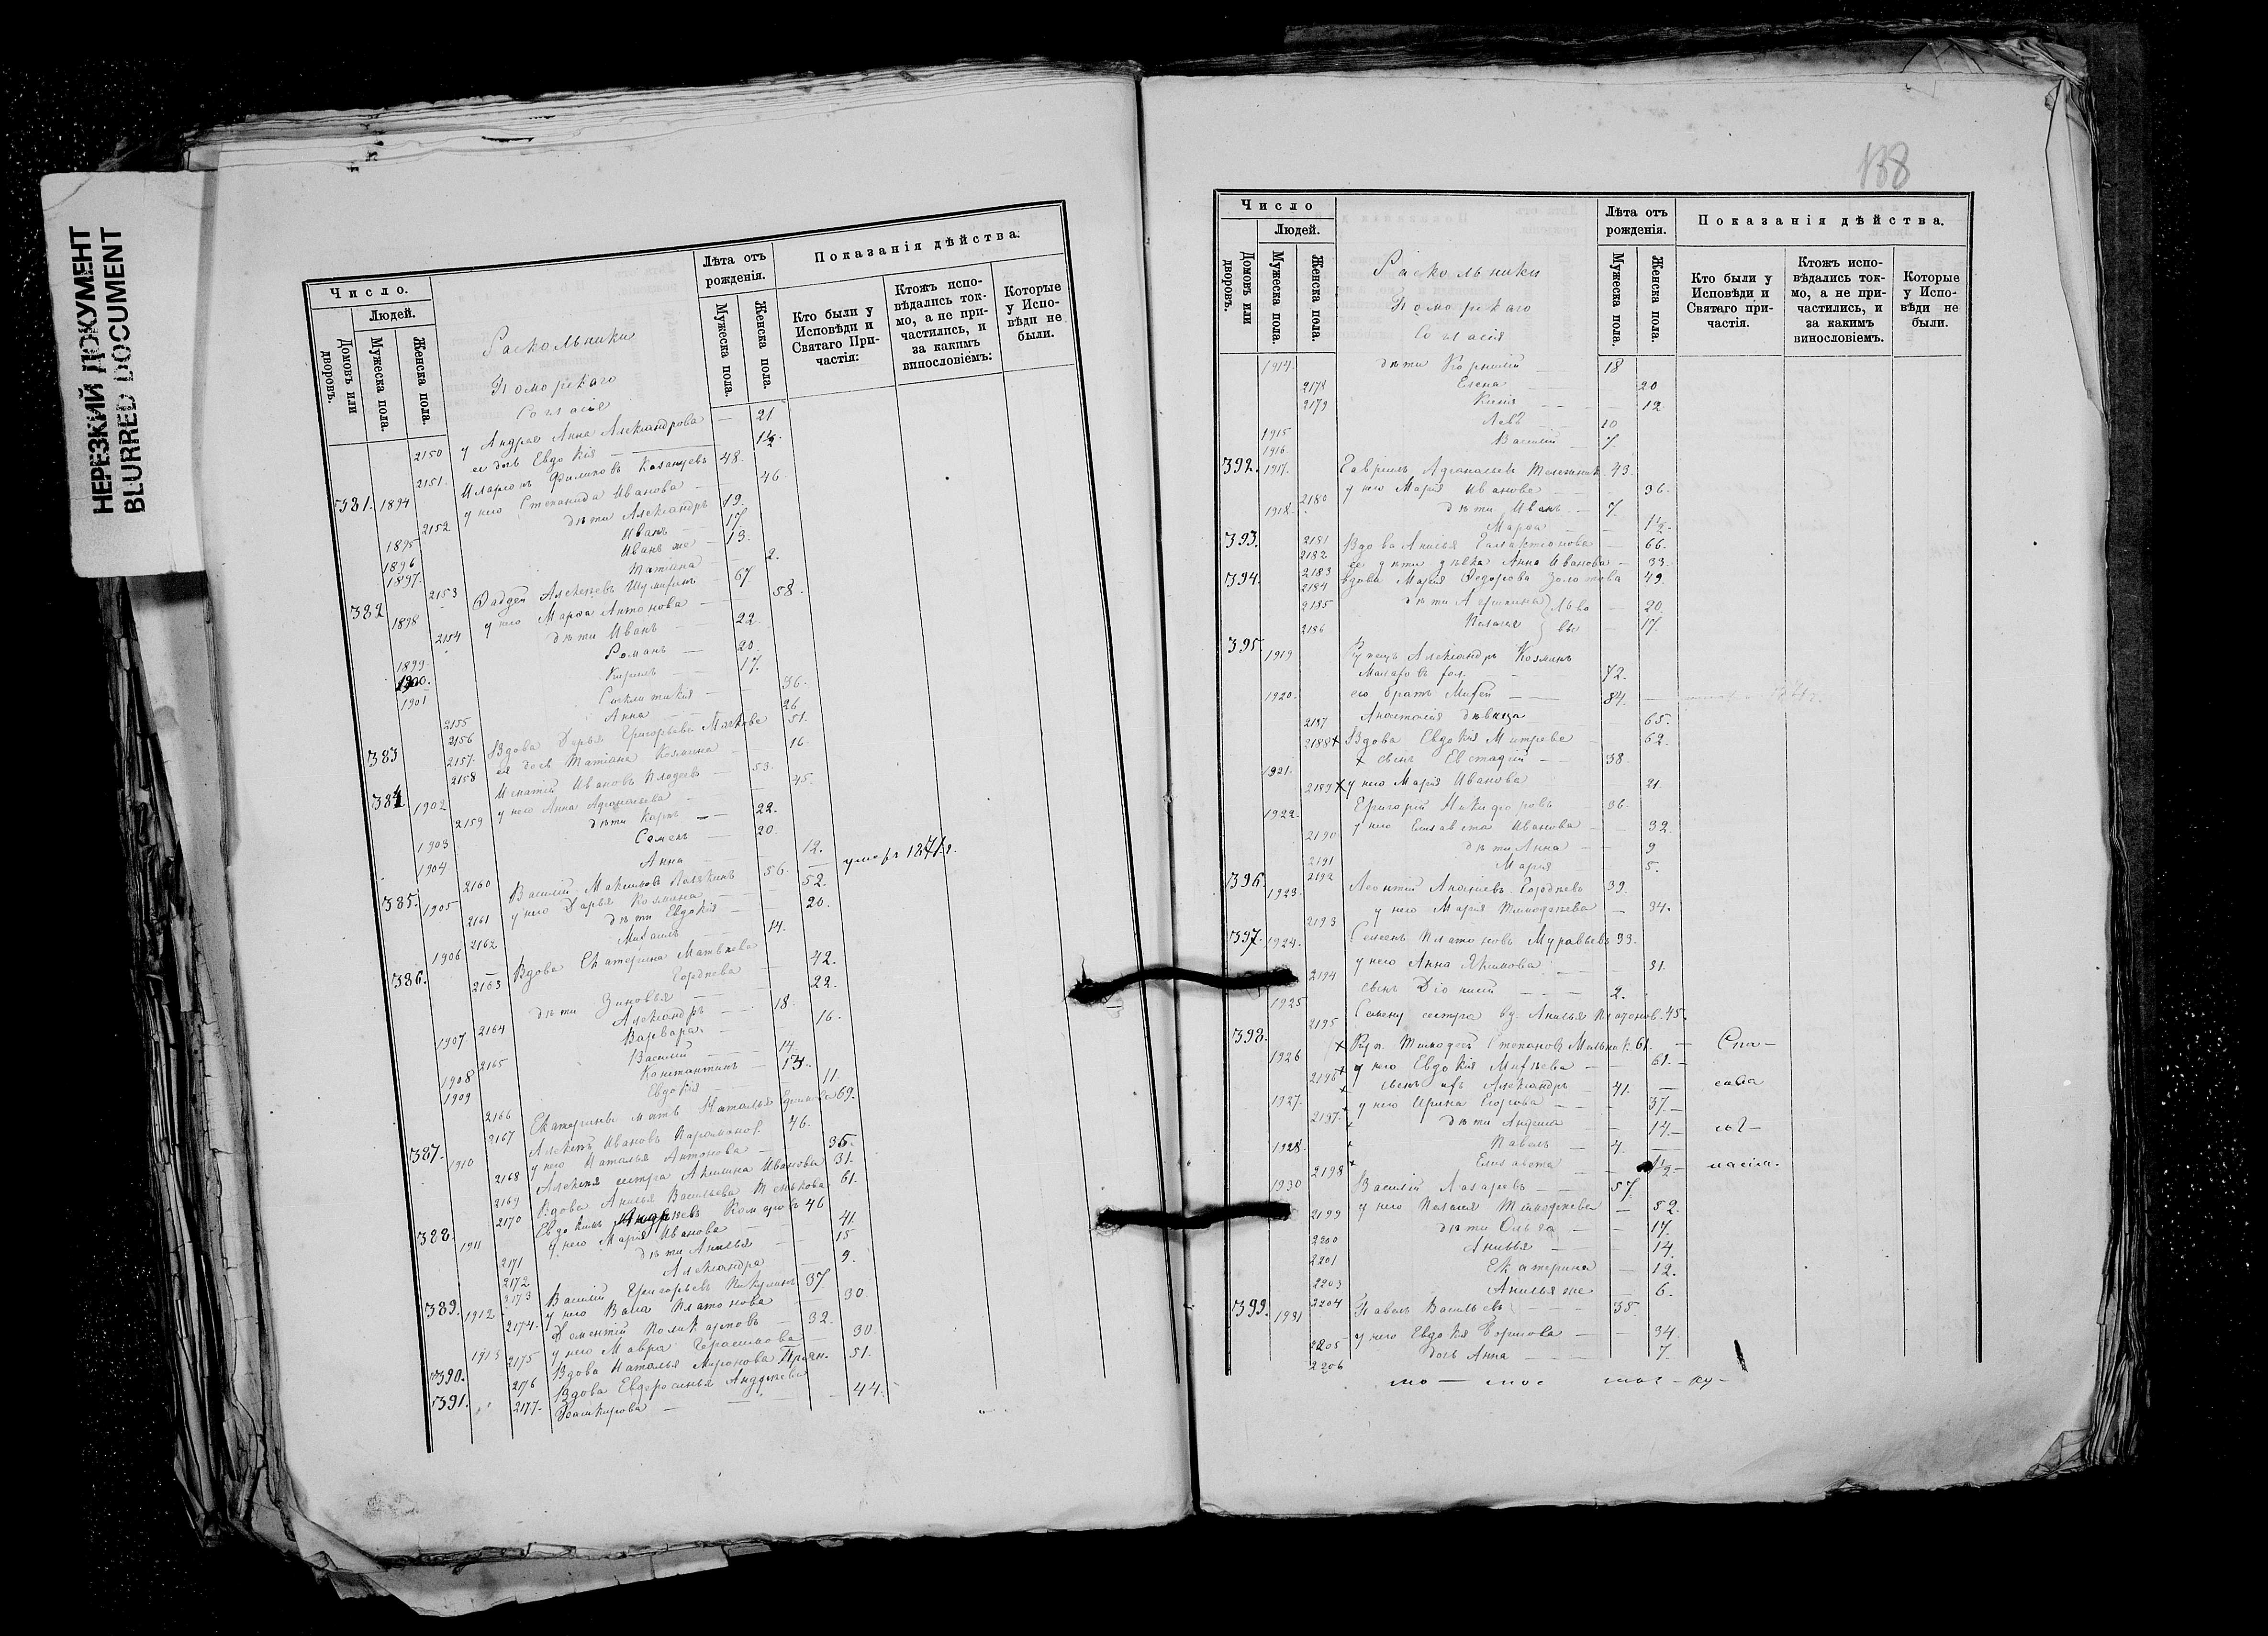 НЕРЕЗКИЙ ДОКУМЕНТ
BLURRED DOCUMENT
Число.
Людей.
Домовъ или дворовъ.
Мужеска пола.
Женска пола.
Раскольники
Поморскаго
Согласія
Лѣта отъ рожденія.
Мужеска пола.
Женска пола.
Показанія дѣйства.
Кто были у Исповѣди и Святаго Причастія:
Ктожъ исповѣдались токмо, а не причастились, и за какимъ винословіемъ:
Которые у Исповѣди не были.
2150 у Андрея Анна Александрова — 21
2151. ея дочь Евдокія 1½.
381. 1894 Иларіонъ Филиповъ Казанцевъ 48.
2152 у него Степанида Иванова — 46.
1895 дѣти Александръ 19.
1896 Иванъ — 17.
1897. Иванъ же — 13.
2153 Татіана — 2.
382 1898 Фаддей Алексѣевъ 67
2154 у него Марѳа Антонова — 58.
1899 дѣти Иванъ — 22.
1900. Романъ — 20.
1901 Кирилъ — 17.
2155 Синклитикія — 36.
2156 Анна — 26
383 2157. Вдова Дарья Григорьева 51.
2158 ея дочь Татіана Козмина — 16
384 1902 Игнатій Ивановъ 53.
2159 у него Анна Афонасьева — 45.
1903 дѣти Карпъ — 22.
1904 Семенъ — 20.
2160 Анна — 12.
385. 1905 Василій Максимовъ 56. — умеръ 1871 г.
2161 у него Дарья Козмина — 52.
2162 дѣти Евдокія — 20.
1906 Михаилъ — 14.
386. 2163 Вдова Екатерина Матвѣева
Гордѣева — 42.
2164 дѣти Зиновья — 22.
1907 Александръ — 18.
2165 Варвара — 16.
1908 Василій — 14.
1909 Константинъ — 13.
2166 Евдокія — 11.
2167 Екатерины мать Наталья 69.
387. 1910 Алексѣй Ивановъ 46.
2168 у него Наталья Антонова — 36.
2169 Алексѣя сестра Акилина Иванова 31.
2170 Вдова Анисья Васильева 61.
388. 1911 Евдокимъ Андреевъ Комаровъ 46
2171 у него Марія Иванова — 41.
2172 дѣти Анисья — 15
2173 Александра — 9.
389. 1912 Василій Григорьевъ Пикулинъ 37.
2174. у него Васа Платонова — 30.
1913 Дементій Поликарповъ — 32.
2175 у него Мавра Герасимова — 30.
390. 2176 Вдова Наталья Миронова 51.
391. 2177. Вдова Евфросинья Андреева
Башкирова — 44.
138
Число
Людей.
Домовъ или дворовъ.
Мужеска пола.
Женска пола.
Раскольники
Поморскаго
Согласія
Лѣта отъ рожденія.
Мужеска пола.
Женска пола.
Показанія дѣйства.
Кто были у Исповѣди и Святаго причастія.
Ктожъ исповѣдались токмо, а не причастились, и за какимъ винословіемъ.
Которые у Исповѣди не были.
1914. дѣти Корнилій — 18
2178 Елена — 20
2179 Ксенія — 12
1915 Левъ 10
1916 Василій — 7.
392. 1917. Гавріилъ Афонасьевъ 43
2180 у него Марія Иванова — 36.
1918. дѣти Иванъ — 7.
2181 Марѳа — 1½.
393. 2182 Вдова Анисья Галактіонова — 66.
2183 ея дѣти дѣвка Анна Иванова — 33.
394. 2184 вдова Марія Федорова Золотова 49.
2185 дѣти Льво 20.
2186 Пелагея вы 17.
395. 1919 Купецъ Александръ Козминъ
72.
1920. его братъ 84.
2187 Анастасія дѣвица 65.
2188 х Вдова Евдокія 62.
1921. х сынъ Евстафій — 38.
2189 х у него Марія Иванова 21
1922. Григорій Никифоровъ 36.
2190 у него Елисавета Иванова — 32.
2191 дѣти Анна — 9
2192 Марія 5.
396. 1923. Леонтій Ананіевъ Гордѣевъ 39.
2193 у него Марія Тимофѣева — 34.
397. 1924. Семенъ Платоновъ Муравьевъ 33.
2194 у него Анна Якимова — 31.
1925 сынъ Діонисій — 2.
2195 Семену сестра вд. Анисья Платонов. 45.
398. 1926 х Тимофей Степановъ 61. — Спа—
2196 х у него Евдокія 61. —
1927. х сынъ ихъ Александръ — 41. — сова
2197. х у него Ирина Егорова — 37. —
х дѣти 14. — сог—
1928. х Павелъ — 4. —
2198 х Елисавета — 1½ — ласія.
1930 Василій Лазаревъ — 57.
2199 у него Пелагея Тимофѣева — 52.
2200 дѣти Ольга — 17.
2201 Анисья — 14.
2203 Екатерина — 12.
2204 Анисья же 6.
399. 1931 Павелъ Васильевъ 35.
2205 у него Евдокія 34.
2206 дочь Анна — 7.